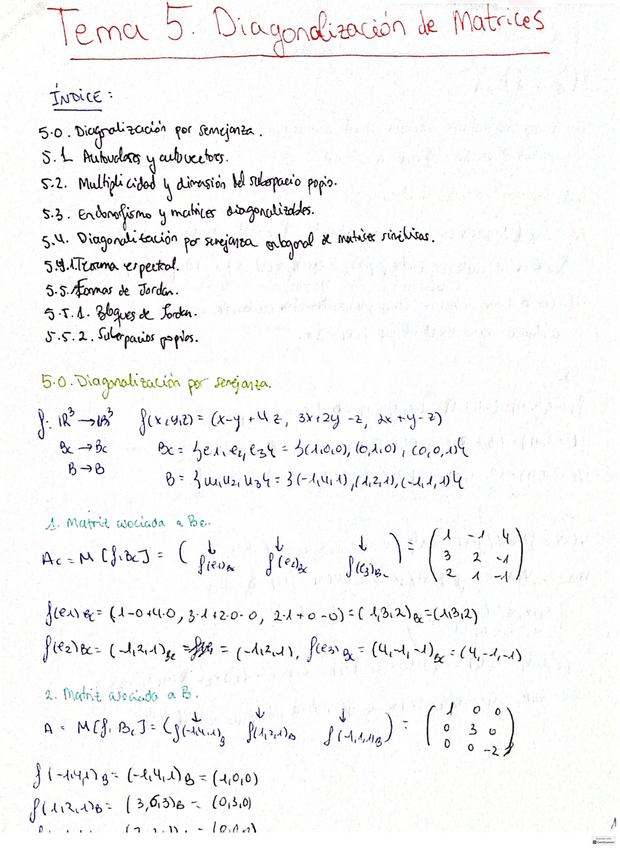 Tema 5. Diagonalización de Matrices
ÍNDICE:
5.0. Diagonalización por semejanza.
5.1. Autovalores y autovectores.
5.2. Multiplicidad y dimensión del subespacio propio.
5.3. Endomorfismo y matrices diagonalizables.
5.4. Diagonalización por semejanza ortogonal de matrices simétricas.
5.4.1. Teorema espectral.
5.5. Formas de Jordan.
5.5.1. Bloques de Jordan.
5.5.2. Subespacios propios.
5.0. Diagonalización por semejanza
f: ℝ³ → ℝ³ f(x,y,z) = (x-y+4z, 3x+2y-z, 2x+y-z)
Bc → Bc Bc = {e1, e2, e3} = {(1,0,0), (0,1,0), (0,0,1)}
B → B B = {u1, u2, u3} = {(-1,4,1), (1,2,1), (-1,1,1)}
1. Matriz asociada a Bc.
Ac = M[f,Bc] = ( f(e1)Bc f(e2)Bc f(e3)Bc ) = ( 1 -1 4
3 2 -1
2 1 -1 )
f(e1)Bc = (1-0+4·0, 3·1+2·0-0, 2·1+0-0) = (1,3,2)Bc = (1,3,2)
f(e2)Bc = (-1,2,1)Bc = (-1,2,1), f(e3)Bc = (4,-1,-1)Bc = (4,-1,-1)
2. Matriz asociada a B.
A = M[f,Bc] = ( f(-1,4,1)B f(1,2,1)B f(-1,1,1)B ) = ( 1 0 0
0 3 0
0 0 -2 )
f(-1,4,1)B = (-1,4,1)B = (1,0,0)
f(1,2,1)B = (3,6,3)B = (0,3,0)
1